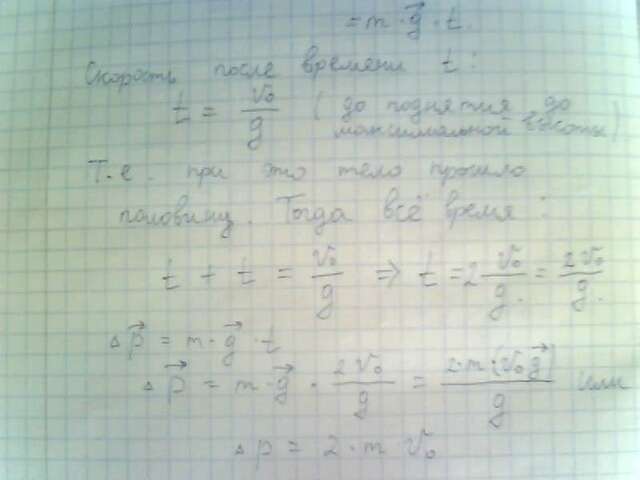 = m · g⃗ · t.
Скорость после времени t :
t = v₀/g ( до поднятия до
максимальной высоты)
Т.е. при это тело прошло
половину. Тогда всё время :
t + t = v₀/g ⇒ t = 2 v₀/g. = 2v₀/g.
Δp⃗ = m · g⃗ · t
Δp⃗ = m · g⃗ · 2v₀/g = 2·m·(v₀g⃗)/g или
Δp = 2 · m v₀